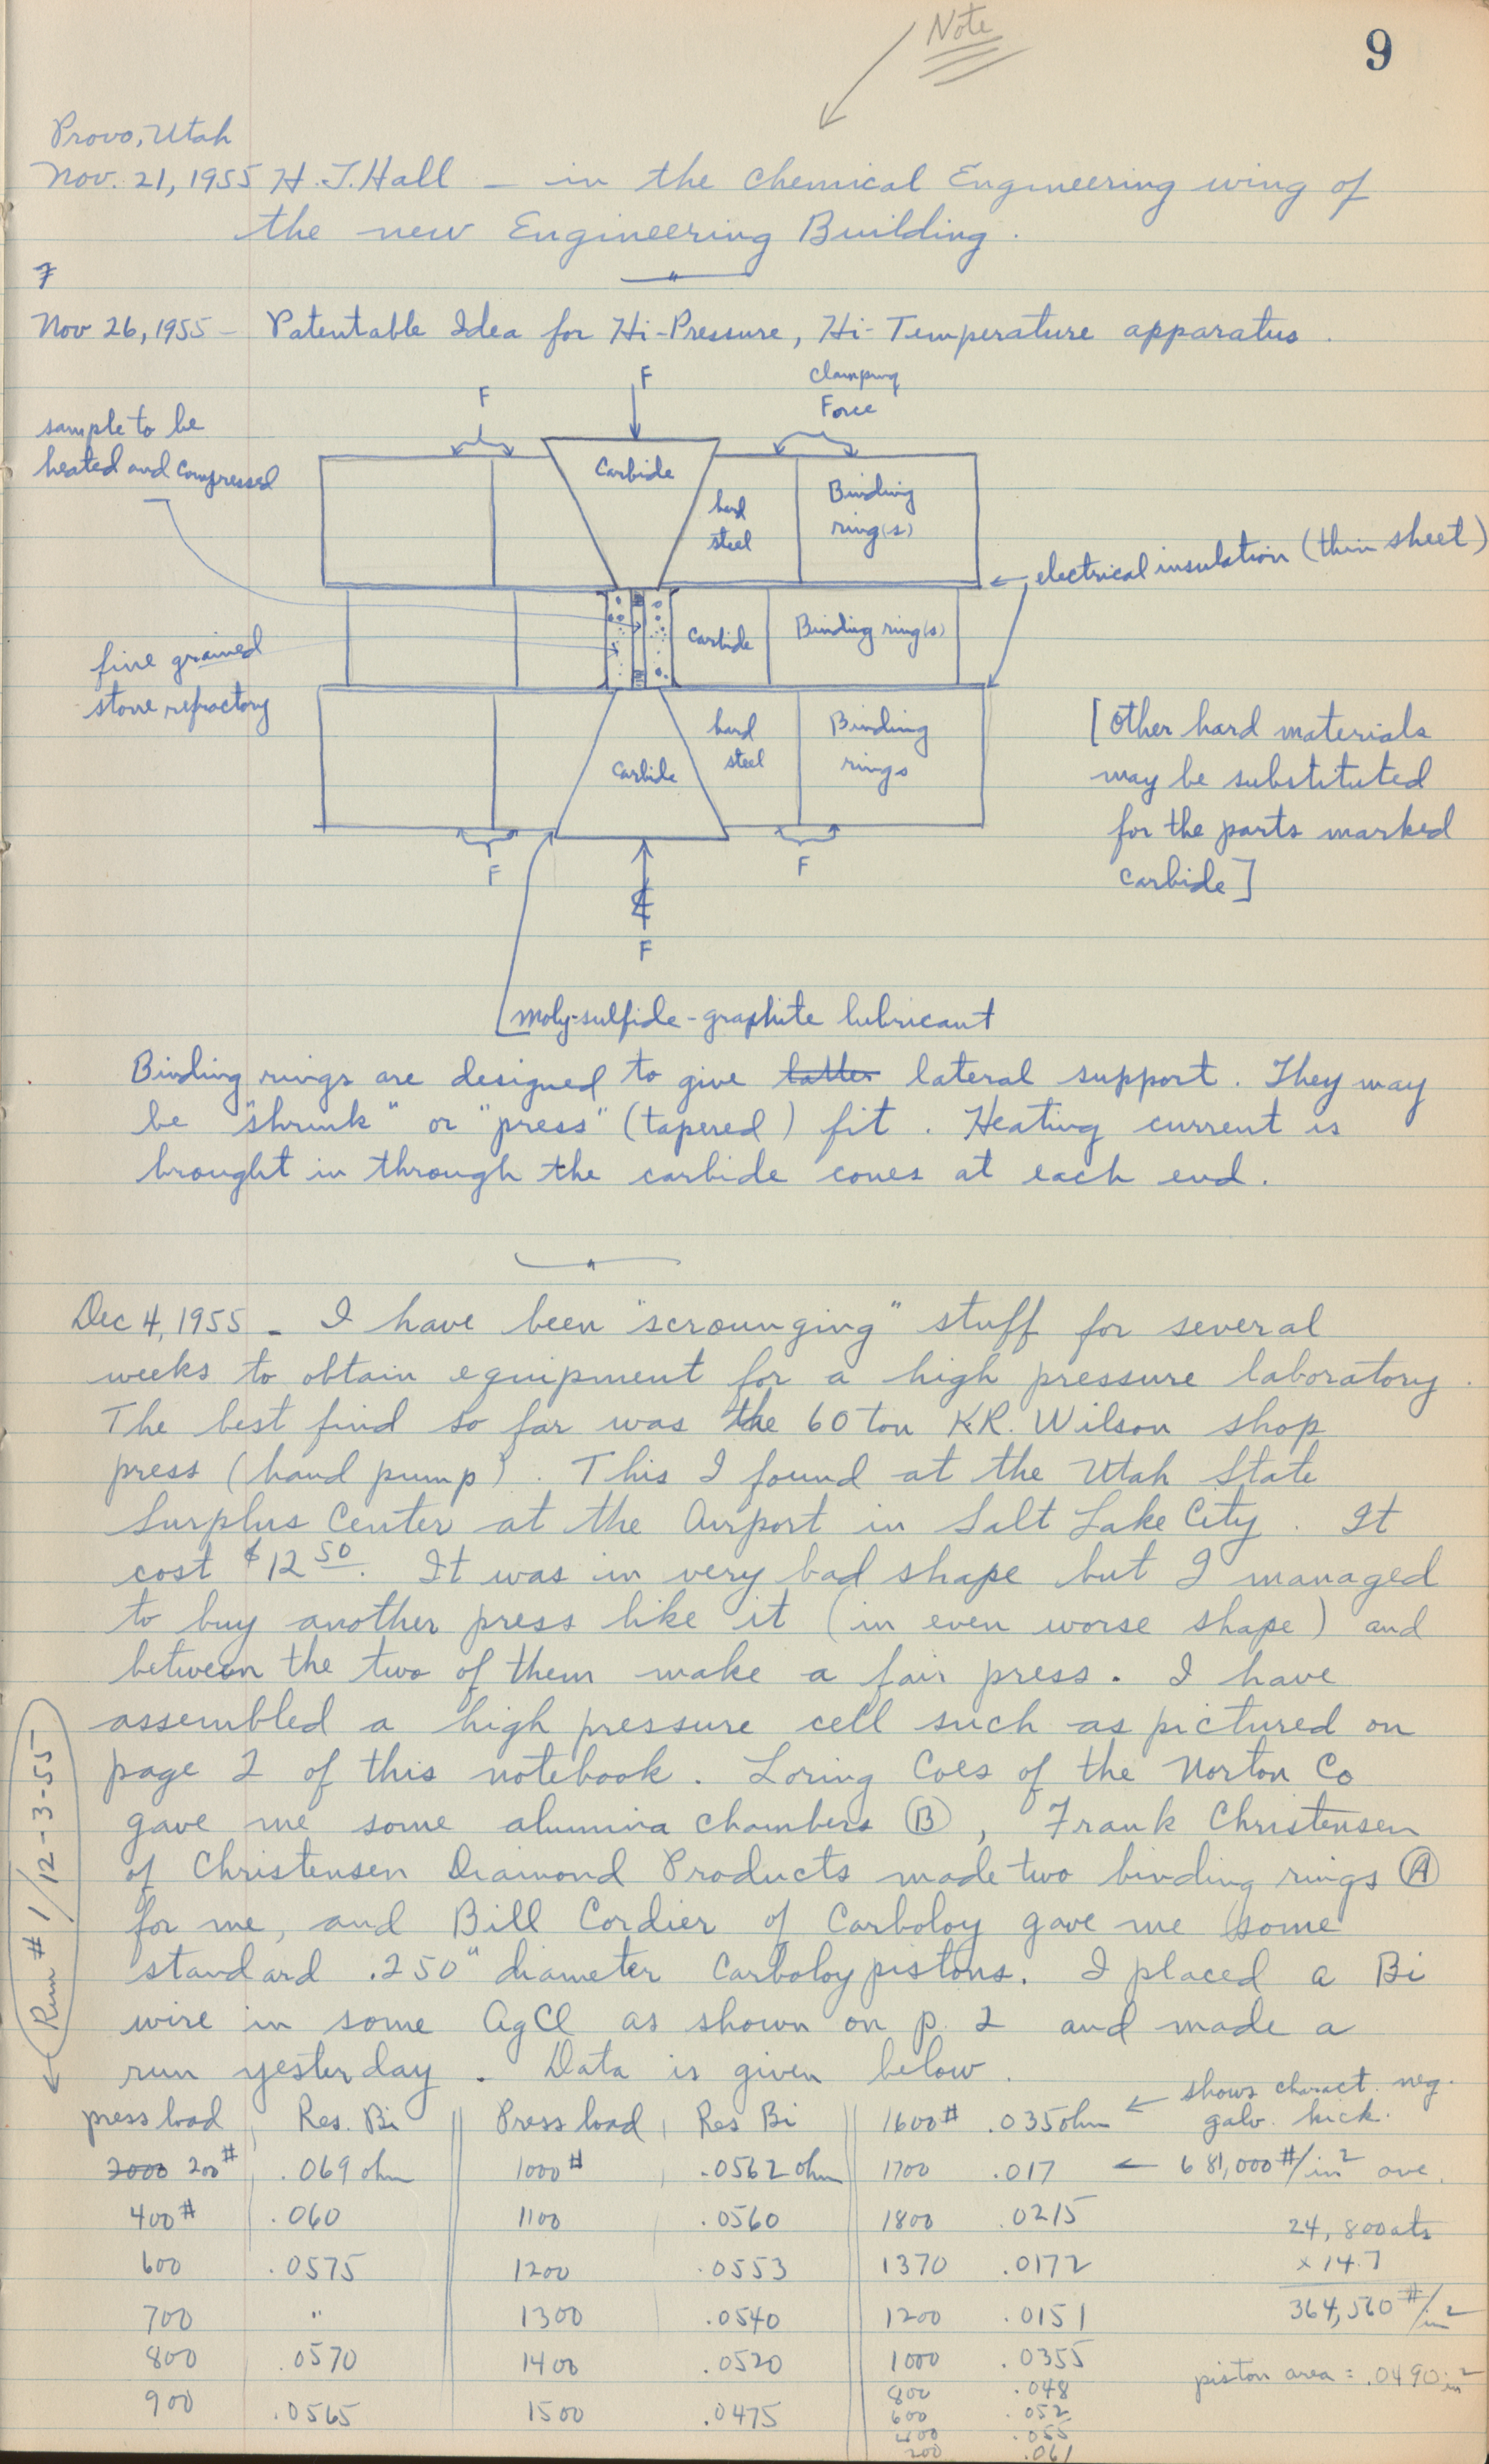 Note
9
Provo, Utah
Nov. 21, 1955 H. T. Hall – in the Chemical Engineering wing of
the new Engineering Building.
Nov 26, 1955 – Patentable Idea for Hi-Pressure, Hi-Temperature apparatus.
F
F
Clamping
Force
sample to be
heated and compressed
Carbide
hard
steel
Binding
ring(s)
electrical insulation (thin sheet)
fine grained
stone refractory
Carbide
Binding ring(s)
hard
steel
Binding
rings
Carbide
[Other hard materials
may be substituted
for the parts marked
carbide]
F
F
F
moly-sulfide-graphite lubricant
Binding rings are designed to give latter lateral support. They may
be "shrink" or "press" (tapered) fit. Heating current is
brought in through the carbide cones at each end.
Dec 4, 1955 – I have been "scrounging" stuff for several
weeks to obtain equipment for a high pressure laboratory.
The best find so far was the 60 ton KR. Wilson shop
press (hand pump). This I found at the Utah State
Surplus Center at the Airport in Salt Lake City. It
cost $12 50. It was in very bad shape but I managed
to buy another press like it (in even worse shape) and
between the two of them make a fair press. I have
assembled a high pressure cell such as pictured on
page 2 of this notebook. Loring Coes of the Norton Co
gave me some alumina chambers Ⓑ, Frank Christensen
of Christensen Diamond Products made two binding rings Ⓐ
for me, and Bill Cordier of Carboloy gave me some
standard .250" diameter Carboloy pistons. I placed a Bi
wire in some AgCl as shown on p. 2 and made a
run yesterday. Data is given below.
Run #1/12-3-55
press load Res. Bi Press load Res Bi 1600# .035 ohm ← shows charact. neg. galv. kick.
2000 200# .069 ohm 1000# .0562 ohm 1700 .017 ← 681,000 #/in² ave.
400# .060 1100 .0560 1800 .0215 24,800 ats
600 .0575 1200 .0553 1370 .0172 × 14.7
700 " 1300 .0540 1200 .0151 364,560 #/in²
800 .0570 1400 .0520 1000 .0355
piston area = .0490 in²
900 .0565 1500 .0475 800 .048
600 .052
400 .055
200 .061